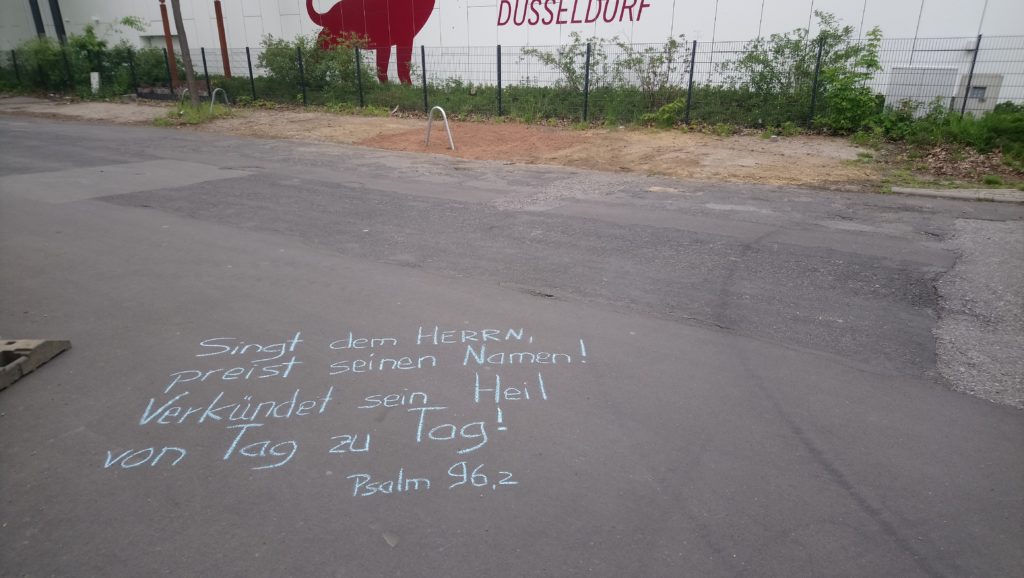 DÜSSELDORF
Singt dem HERRN,
preist seinen Namen!
Verkündet sein Heil
von Tag zu Tag!
Psalm 96,2